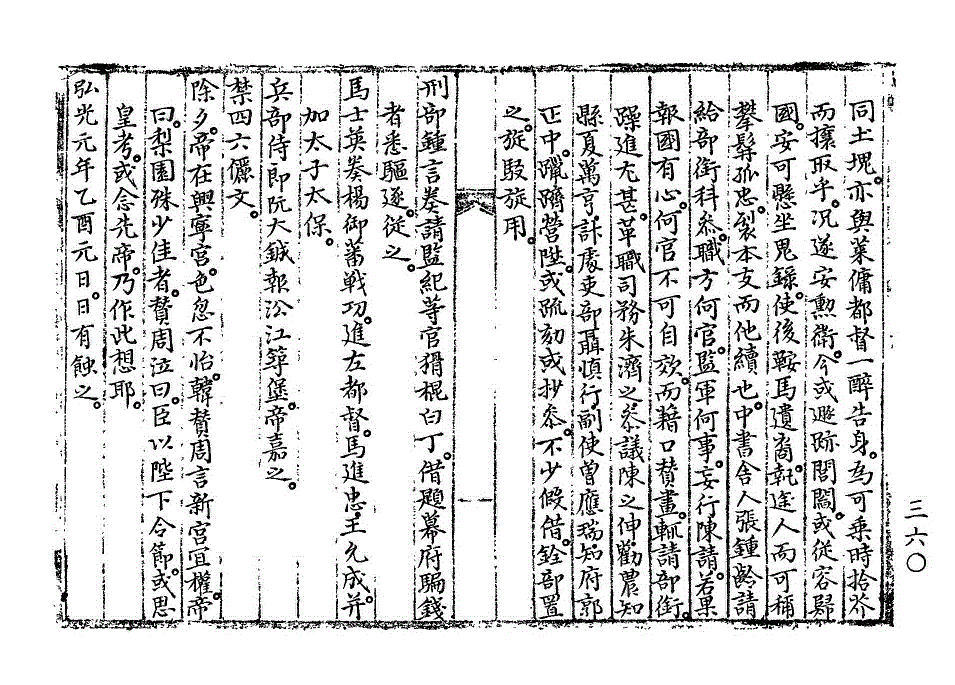 同土塊亦與菜傭都督一醉告身為可乘時拾芥
而攘取乎况遂安勲衛今或遯跡閭閻或從容歸
國安可懸坐鬼錄使後鞍馬遺裔執途人而可稱
攀髯孤忠裂本支而他續也中書舍人張鍾齡請
給部銜科叅職方何官監軍何事妄行陳請若果
報國有心何官不可自效而藉口贊畫輒請部銜
躁進尤甚革職司務朱濟之叅議陳之伸勸農知
縣夏萬亨計處吏部聶慎行副使曾應瑞知府郭
正中躐躋營陞或疏刻或抄叅不少假借銓部置
之旋駁旋用
刑部鍾言奏請監紀等官猾棍白丁借題幕府騙錢
者悉驅逐從之
馬士英奏楊御蕃戰功進左都督馬進忠王允成并
加太子太保
兵部侍郎阮大鋮報㳂江築堡帝嘉之
禁四六儷文
除夕帝在興寧宫色忽不怡韓贊周言新宫宜權帝
曰梨園殊少佳者贊周泣曰臣以陛下令節或思
皇考或念先帝乃作此想耶
弘光元年乙酉元日日有蝕之
三六〇